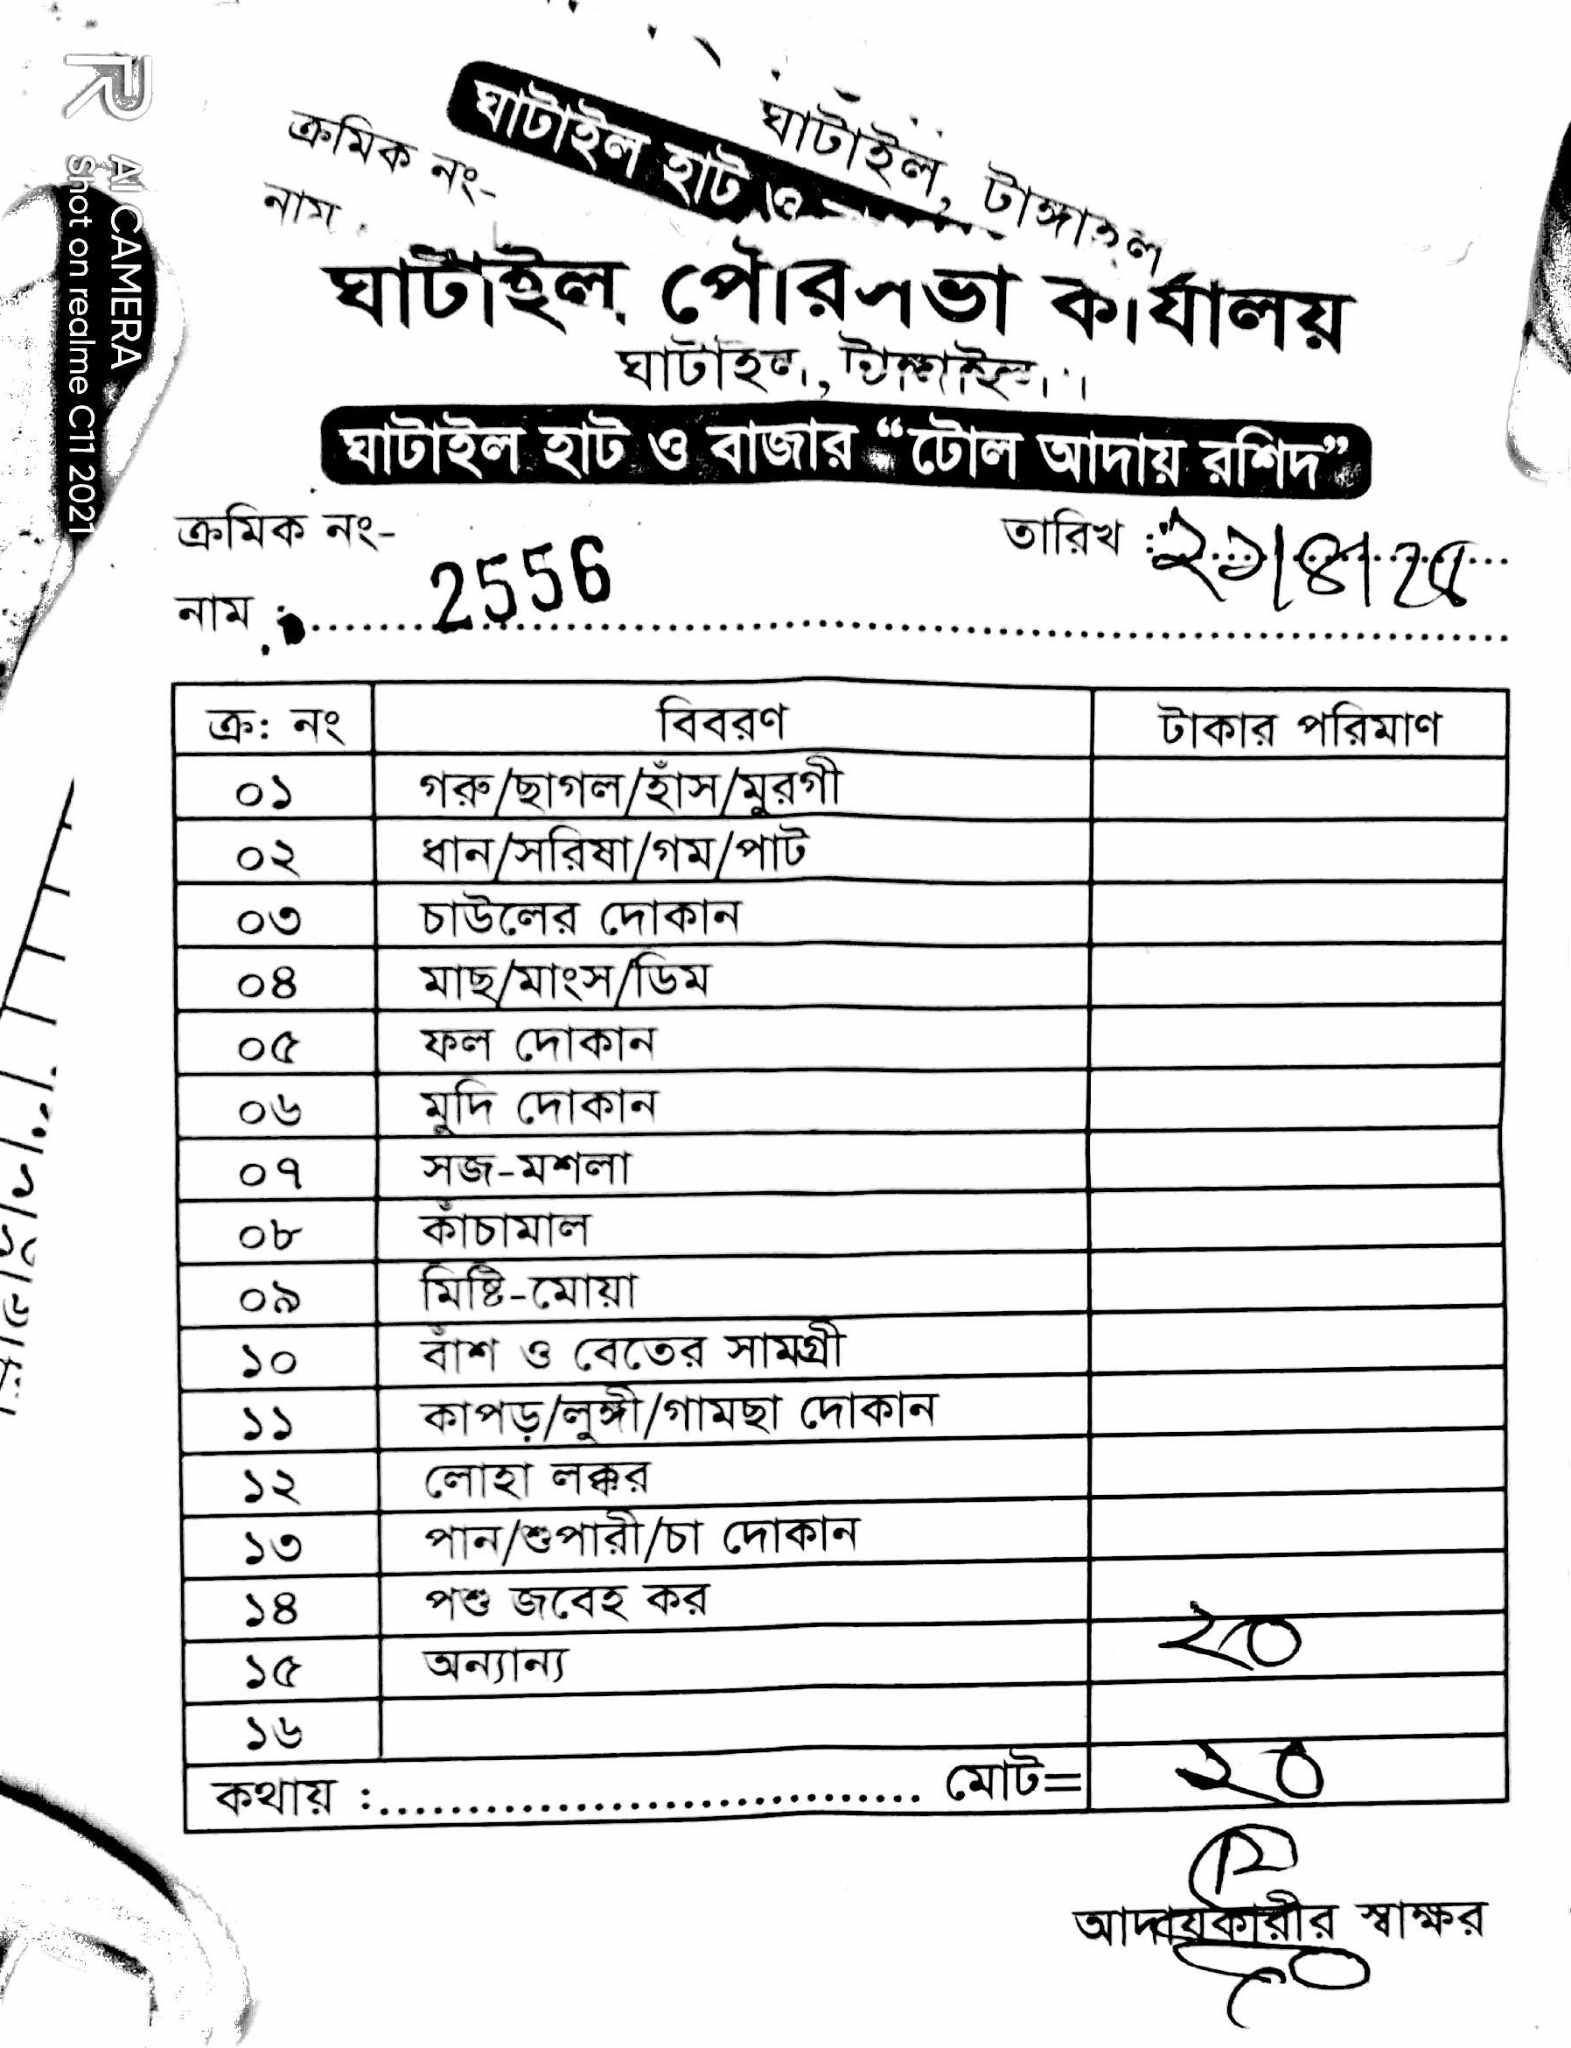 ঘাটাইল, টাঙ্গাইল
ঘাটাইল হাট ও
ক্রমিক নং-
নাম
ঘাটাইল পৌরসভা কার্যালয়
ঘাটাইল, টাঙ্গাইল।
ঘাটাইল হাট ও বাজার “টোল আদায় রশিদ”
ক্রমিক নং- 2556 তারিখ :
নাম :
ক্র: নং বিবরণ টাকার পরিমাণ
০১ গরু/ছাগল/হাঁস/মুরগী
০২ ধান/সরিষা/গম/পাট
০৩ চাউলের দোকান
০৪ মাছ/মাংস/ডিম
০৫ ফল দোকান
০৬ মুদি দোকান
০৭ সজ-মশলা
০৮ কাঁচামাল
০৯ মিষ্টি-মোয়া
১০ বাঁশ ও বেতের সামগ্রী
১১ কাপড়/লুঙ্গী/গামছা দোকান
১২ লোহা লক্কর
১৩ পান/শুপারী/চা দোকান
১৪ পশু জবেহ কর
১৫ অন্যান্য ২০
১৬
কথায় : মোট= ২০
আদায়কারীর স্বাক্ষর
AI CAMERA
Shot on realme C11 2021